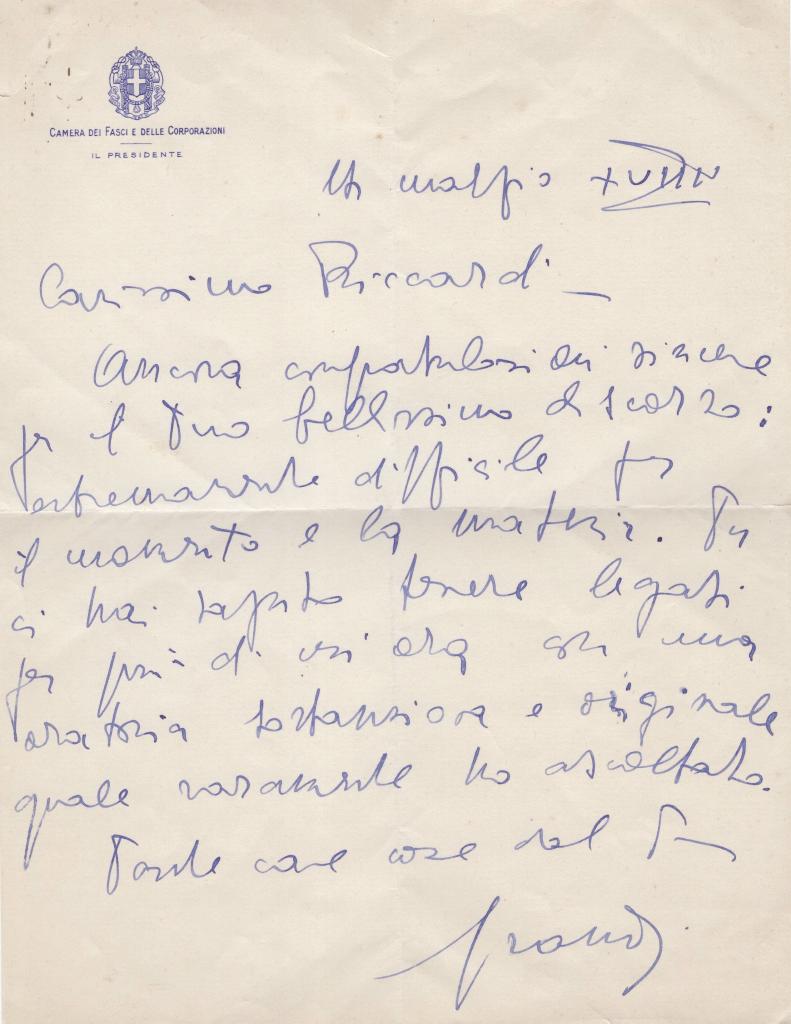 CAMERA DEI FASCI E DELLE CORPORAZIONI
IL PRESIDENTE
maggio XVIII
Carissimo Riccardi –
Ancora congratulazioni sincere
per il Tuo bellissimo discorso:
estremamente difficile per
il momento e la materia. Tu
ci hai saputo tenere legati
per più di un'ora con una
oratoria sostanziosa e originale
quale raramente ho ascoltato.
Tante care cose dal Tuo
Grandi